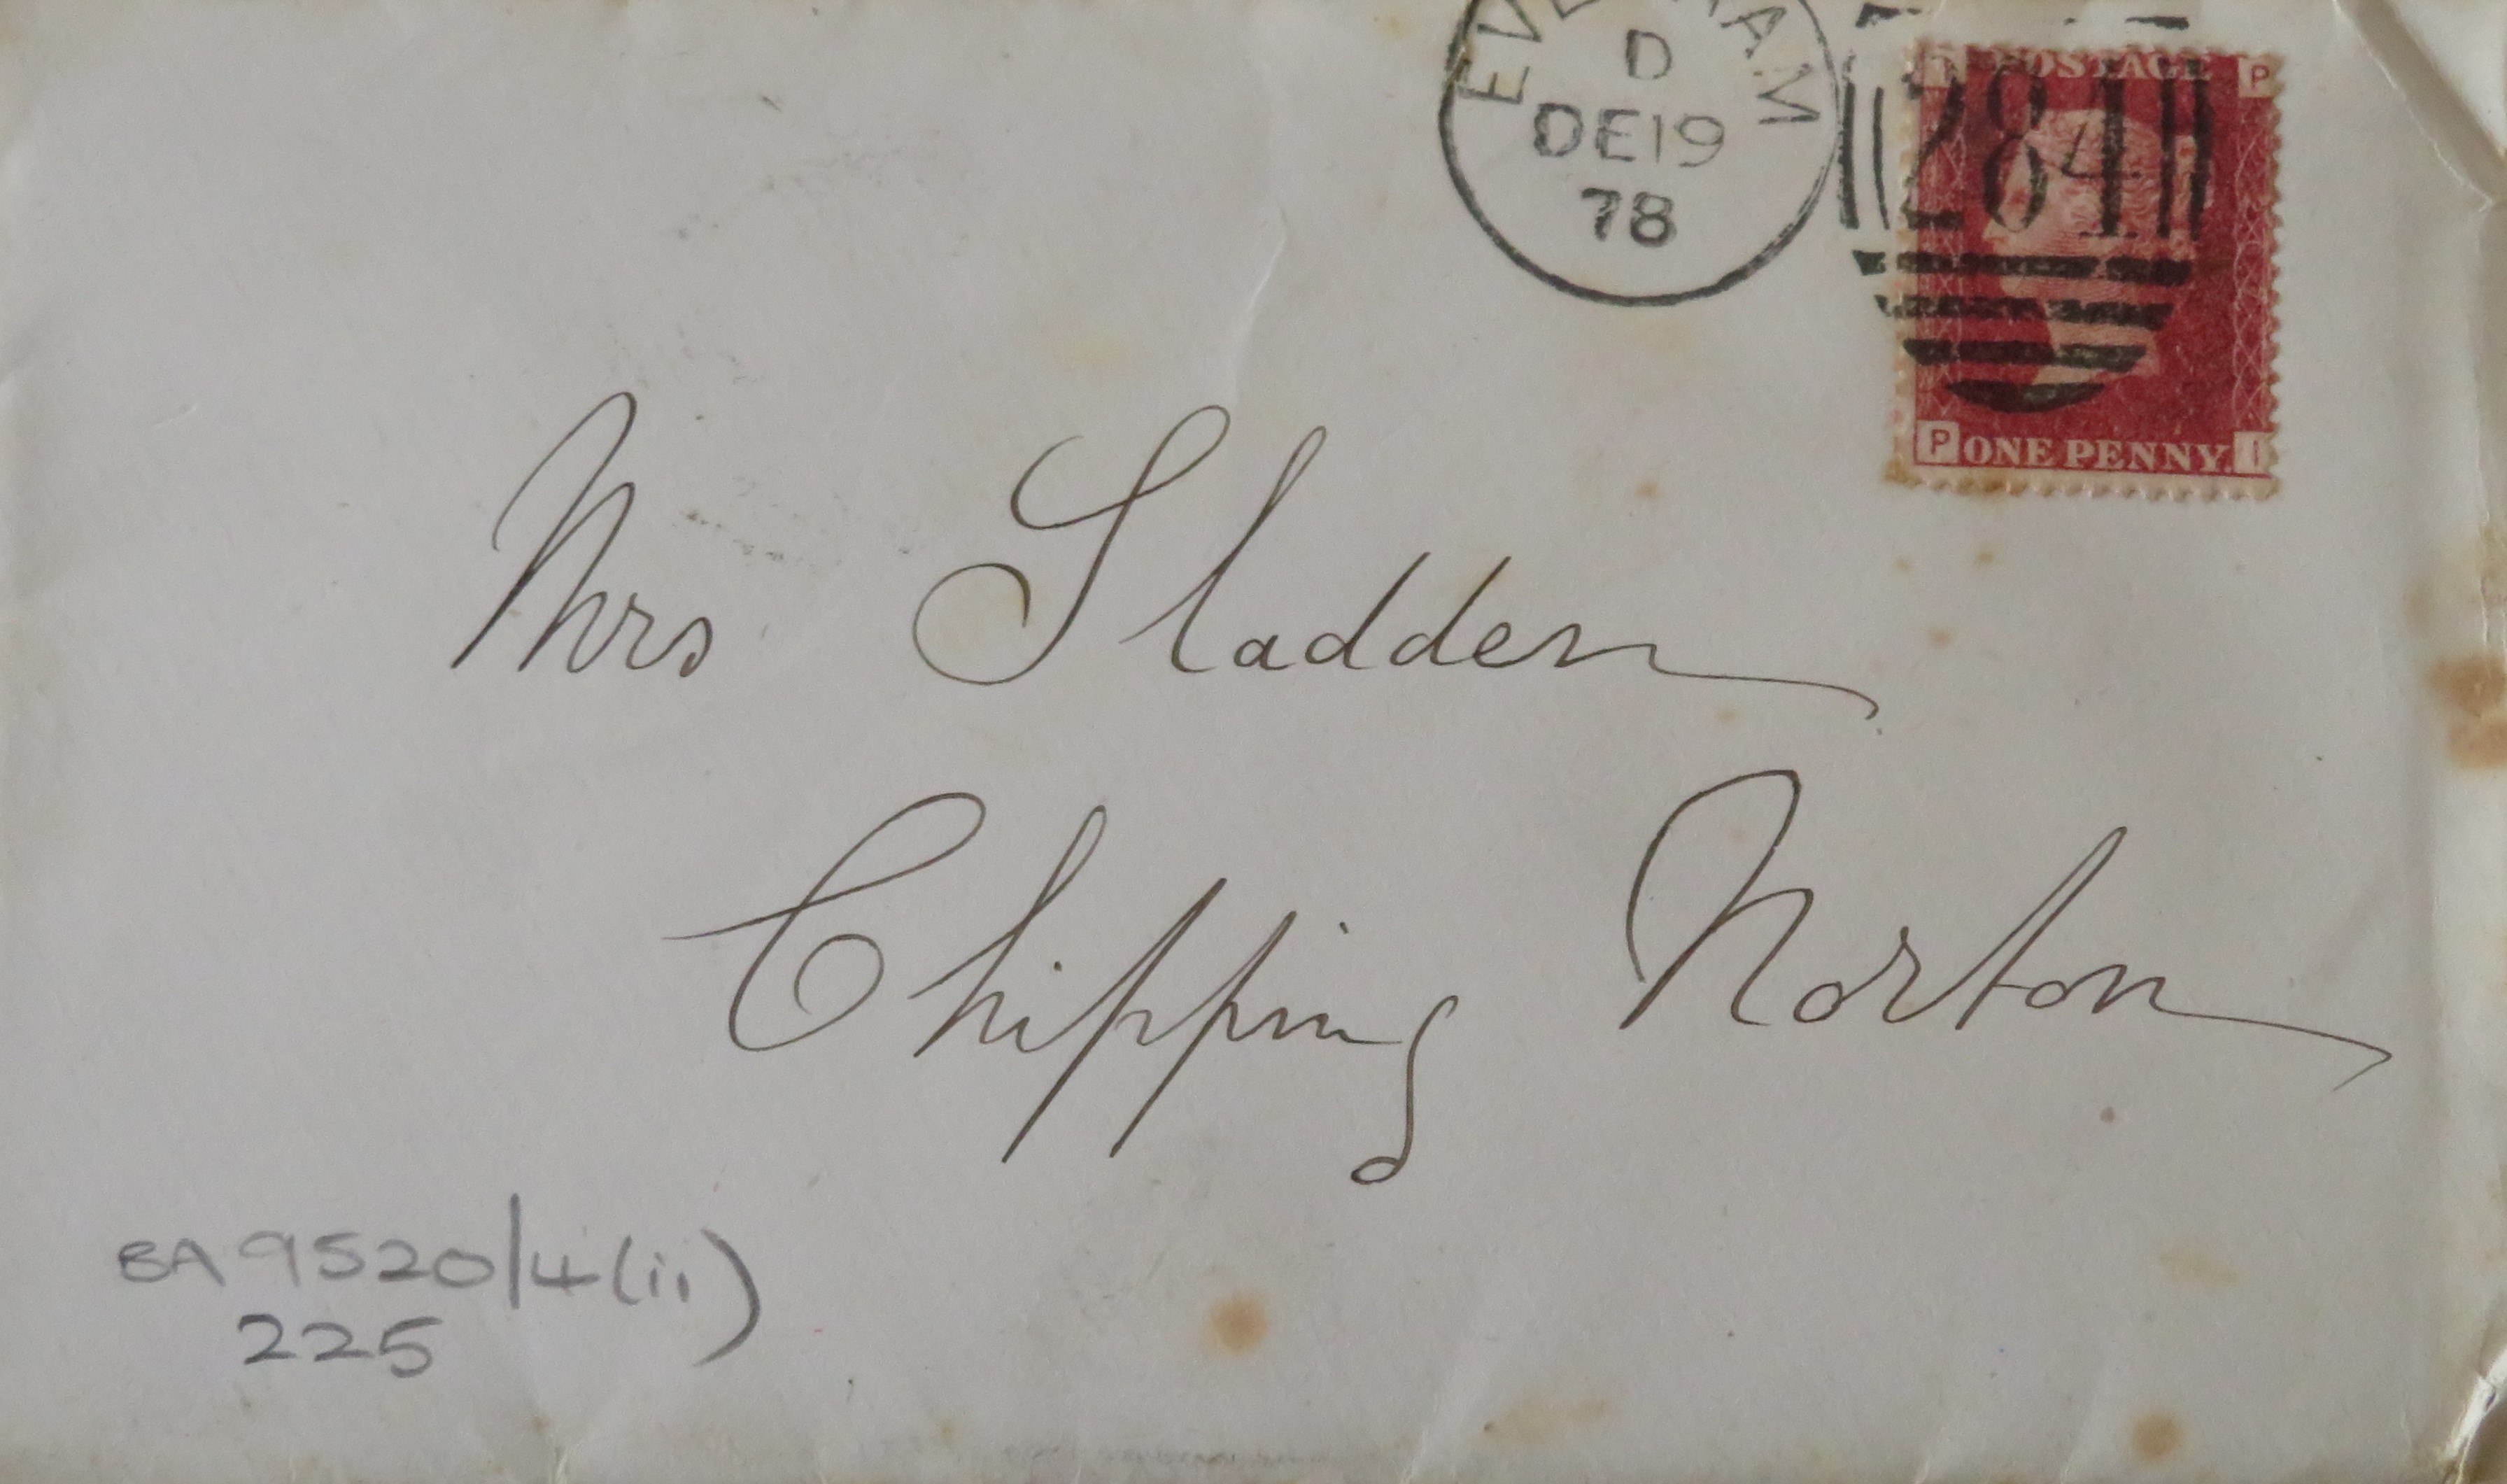 EVE HAM
D
DE19
78
284
POSTAGE P
P ONE PENNY. I
Mrs Sladden
Chipping Norton
BA 9520/4(ii)
225